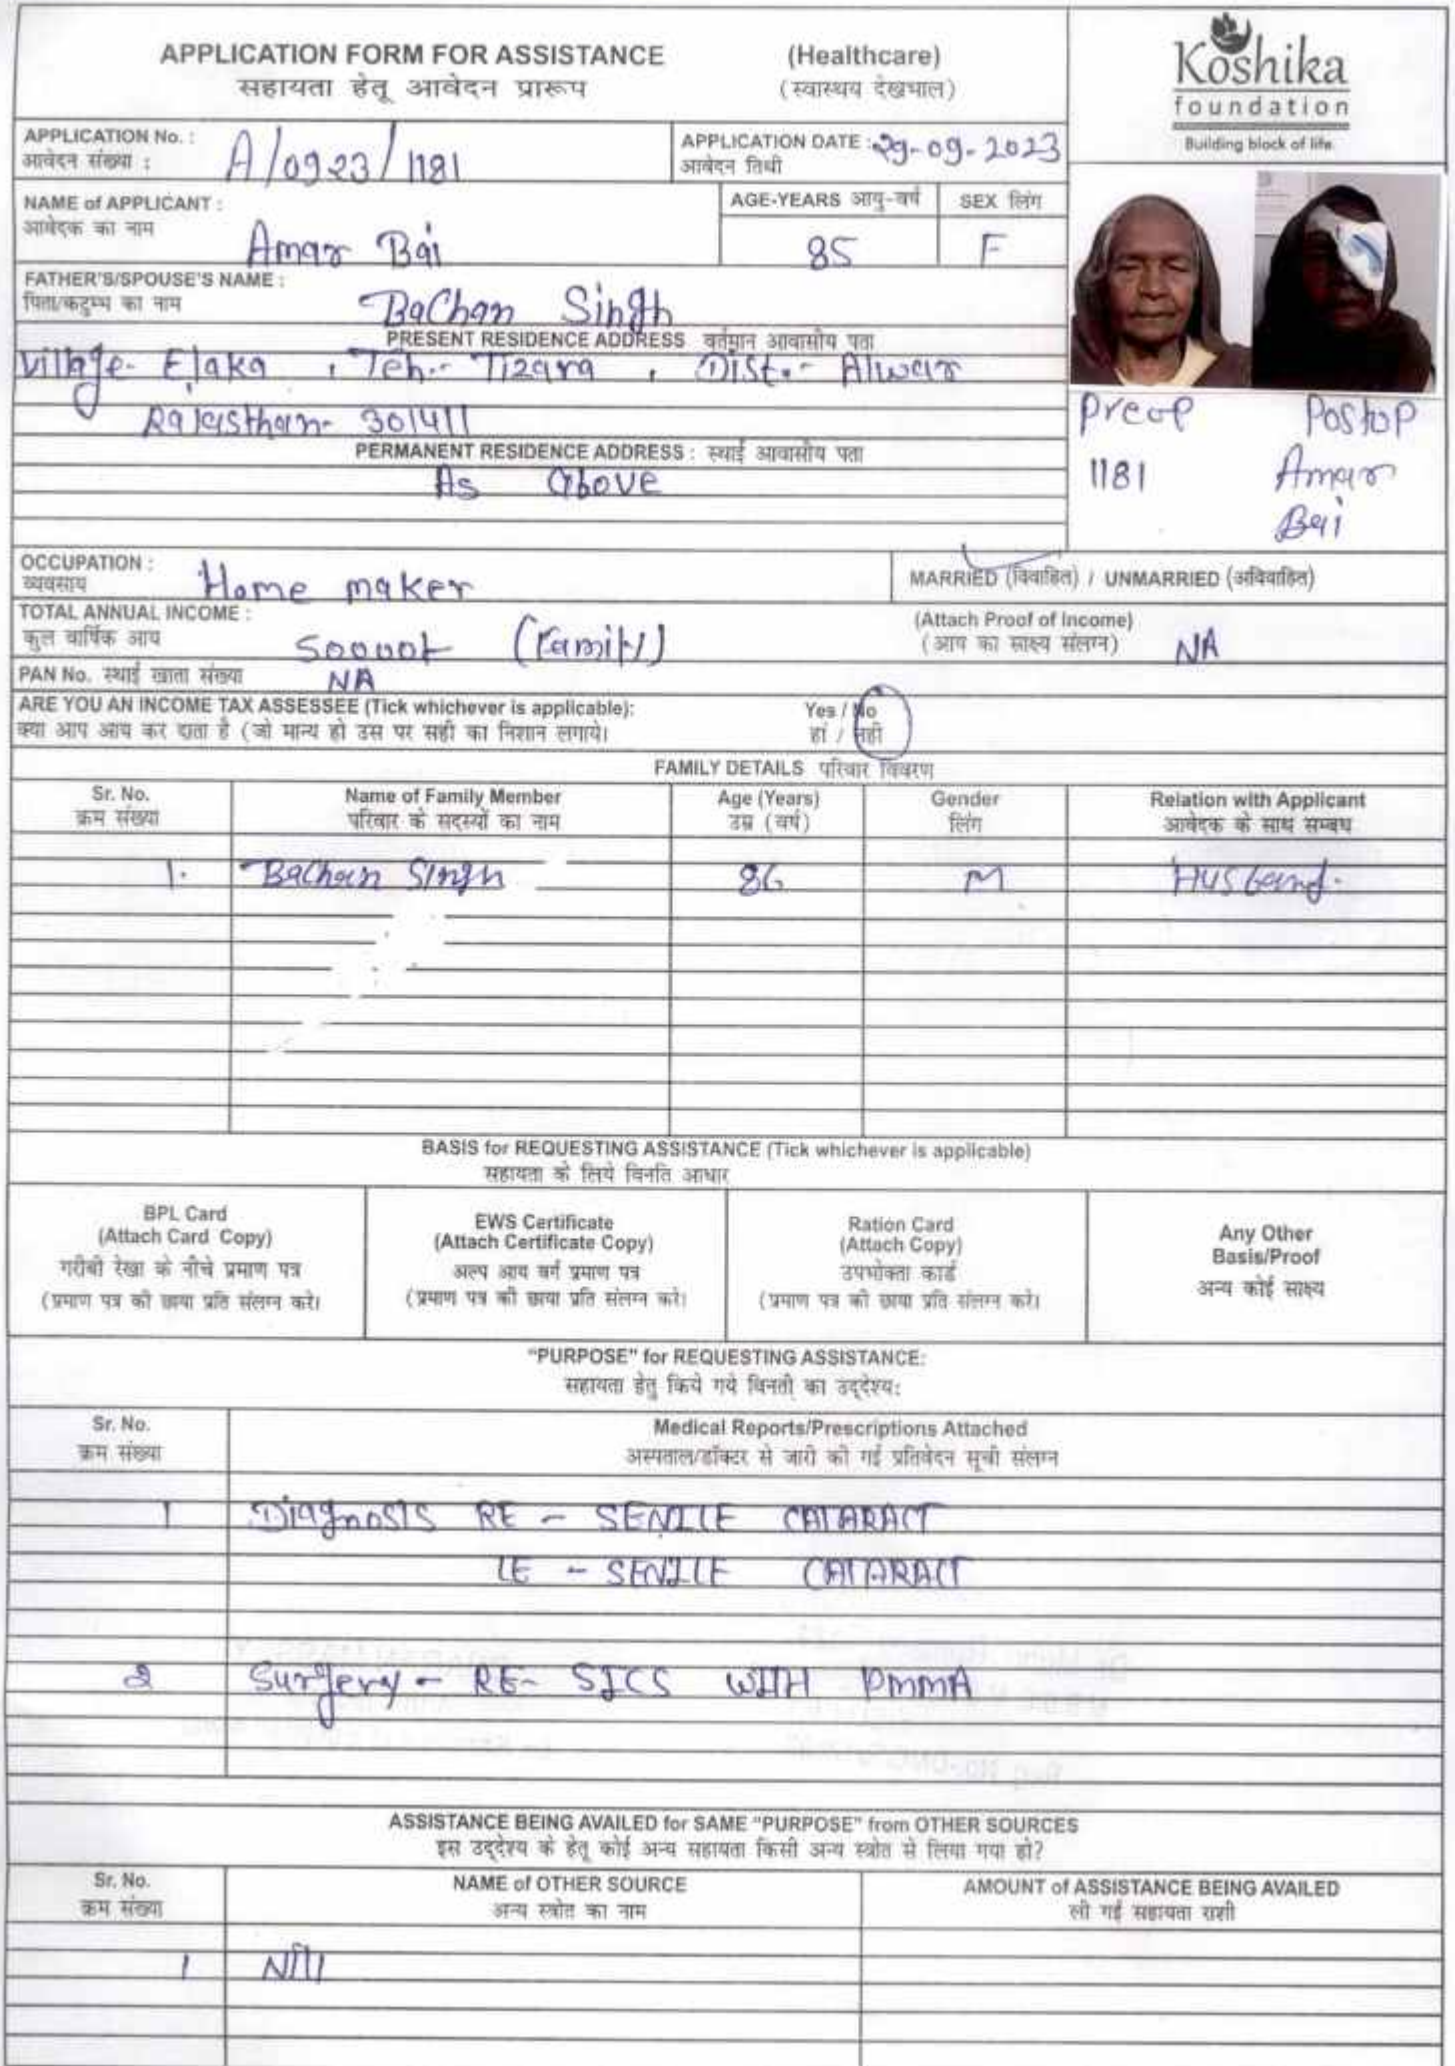 APPLICATION FORM FOR ASSISTANCE (Healthcare)
सहायता हेतू आवेदन प्रारूप (स्वास्थय देखभाल)
Koshika
foundation
Building block of life.
APPLICATION No. : A/0923/1181
आवेदन संख्या :
APPLICATION DATE : 29-09-2023
आवेदन तिथी
NAME of APPLICANT : Amar Bai
आवेदक का नाम
AGE-YEARS आयु-वर्ष 85
SEX लिंग F
FATHER'S/SPOUSE'S NAME : BaChan Singh
पिता/कटुम्ब का नाम
PRESENT RESIDENCE ADDRESS वर्तमान आवासीय पता
Village- Elaka , Teh.- Tizara , Dist.- Alwar
Rajasthan- 301411
PERMANENT RESIDENCE ADDRESS : स्थाई आवासीय पता
As above
Preop Postop
1181 Amar
Bai
OCCUPATION : Home maker
व्यवसाय
MARRIED (विवाहित) / UNMARRIED (अविवाहित)
TOTAL ANNUAL INCOME : (Family)
कुल वार्षिक आय
(Attach Proof of Income) NA
(आय का साक्ष्य संलग्न)
PAN No. स्थाई खाता संख्या NA
ARE YOU AN INCOME TAX ASSESSEE (Tick whichever is applicable): Yes / No
क्या आप आय कर दाता है (जो मान्य हो उस पर सही का निशान लगाये। हां / नही
FAMILY DETAILS परिवार विवरण
Sr. No. Name of Family Member Age (Years) Gender Relation with Applicant
क्रम संख्या परिवार के सदस्यों का नाम उम्र (वर्ष) लिंग आवेदक के साथ सम्बध
1. Bachan Singh 86 M Husband.
BASIS for REQUESTING ASSISTANCE (Tick whichever is applicable)
सहायता के लिये विनति आधार
BPL Card
(Attach Card Copy)
गरीबी रेखा के नीचे प्रमाण पत्र
(प्रमाण पत्र की छाया प्रति संलग्न करे।
EWS Certificate
(Attach Certificate Copy)
अल्प आय वर्ग प्रमाण पत्र
(प्रमाण पत्र की छाया प्रति संलग्न करे।
Ration Card
(Attach Copy)
उपभोक्ता कार्ड
(प्रमाण पत्र की छाया प्रति संलग्न करे।
Any Other
Basis/Proof
अन्य कोई साक्ष्य
"PURPOSE" for REQUESTING ASSISTANCE:
सहायता हेतु किये गये विनती का उद्देश्य:
Sr. No. Medical Reports/Prescriptions Attached
क्रम संख्या अस्पताल/डॉक्टर से जारी की गई प्रतिवेदन सूची संलग्न
1 Diagnosis RE - SENILE CATARACT
LE - SENILE CATARACT
2 Surgery - RE- SICS WITH PMMA
ASSISTANCE BEING AVAILED for SAME "PURPOSE" from OTHER SOURCES
इस उद्देश्य के हेतू कोई अन्य सहायता किसी अन्य स्त्रोत से लिया गया हो?
Sr. No. NAME of OTHER SOURCE AMOUNT of ASSISTANCE BEING AVAILED
क्रम संख्या अन्य स्त्रोत का नाम ली गई सहायता राशी
1 Nill